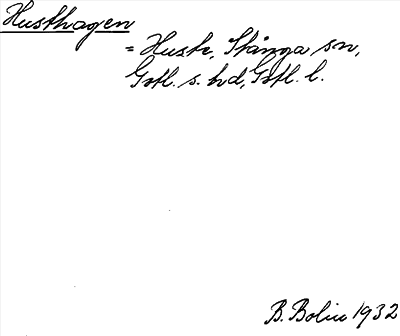 Husthagen
= Huste, Stånga sn,
Gotl. s. hd, Gotl. l.
B. Bolin 1932